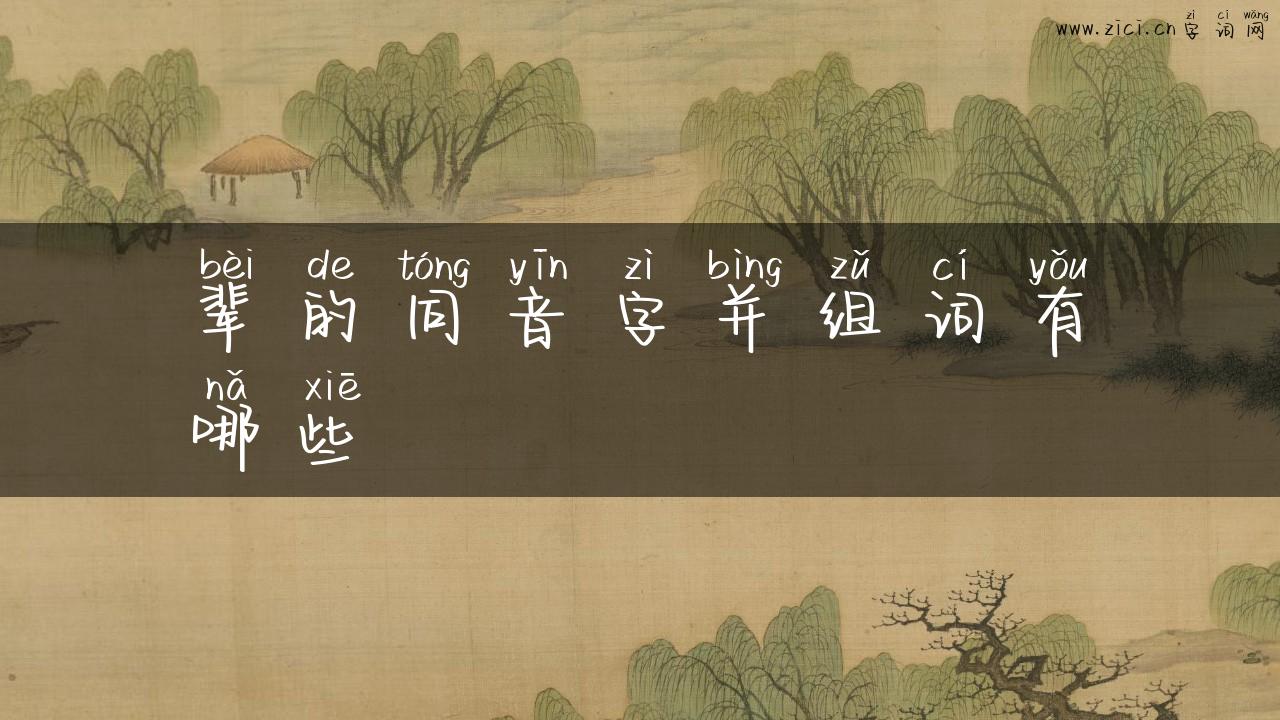 zì cí wǎng
www.zici.cn 字词网
bèi de tóng yīn zì bìng zǔ cí yǒu
辈的同音字并组词有
nǎ xiē
哪些